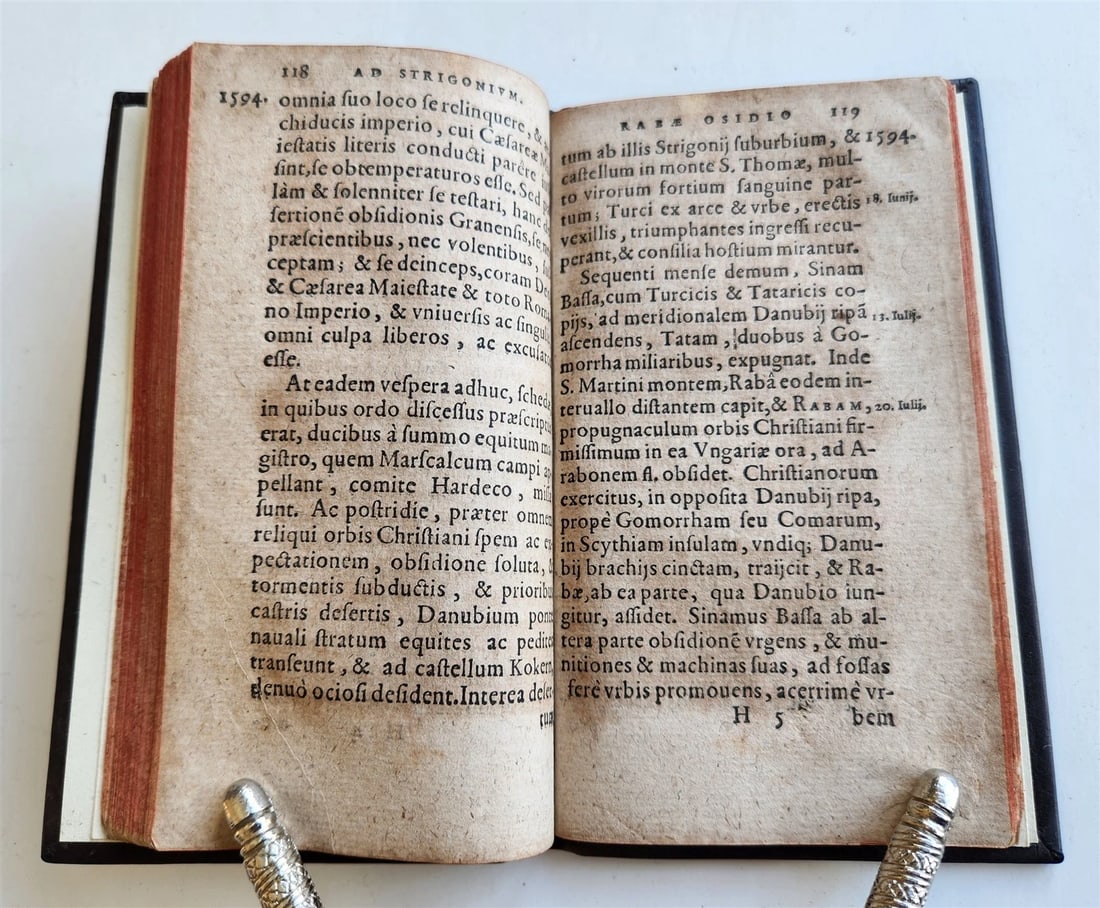 118 AD STRIGONIVM.
1594. omnia ſuo loco ſe relinquere, &
chiducis imperio, cui Cæſareæ
ieſtatis literis conducti parêre
ſint, ſe obtemperaturos eſſe. Sed
làm & ſolenniter ſe teſtari, hanc
ſertionē obſidionis Granenſis, ſe
præſcientibus, nec volentibus,
ceptam; & ſe deinceps, coram
& Cæſarea Maieſtate & toto Roma
no Imperio, & vniuerſis ac ſingul
omni culpa liberos, ac excuſat
eſſe.
At eadem veſpera adhuc, ſched
in quibus ordo diſceſſus præſcript
erat, ducibus à ſummo equitum
giſtro, quem Marſcalcum campi
pellant, comite Hardeco, miſſ
ſunt. Ac poſtridie, præter omnem
reliqui orbis Chriſtiani ſpem ac
pectationem, obſidione ſoluta,
tormentis ſubductis, & prioribu
caſtris deſertis, Danubium ponte
nauali ſtratum equites ac pedites
tranſeunt, & ad caſtellum Kokern
denuò ocioſi deſident. Interea deſer-
tum
RABÆ OSIDIO 119
tum ab illis Strigonij ſuburbium, & 1594.
caſtellum in monte S. Thomæ, mul-
to virorum fortium ſanguine par-
tum; Turci ex arce & vrbe, erectis 18. Iunij.
vexillis, triumphantes ingreſſi recu-
perant, & conſilia hoſtium mirantur.
Sequenti menſe demum, Sinam
Baſſa, cum Turcicis & Tataricis co-
pijs, ad meridionalem Danubij ripā 13. Iulij.
aſcendens, Tatam, duobus à Go-
morrha miliaribus, expugnat. Inde
S. Martini montem, Rabâ eodem in-
teruallo diſtantem capit, & RABAM, 20. Iulij.
propugnaculum orbis Chriſtiani fir-
miſſimum in ea Vngariæ ora, ad A-
rabonem fl. obſidet. Chriſtianorum
exercitus, in oppoſita Danubij ripa,
propè Gomorrham ſeu Comarum,
in Scythiam inſulam, vndiq; Danu-
bij brachijs cinctam, traijcit, & Ra-
bæ, ab ea parte, qua Danubio iun-
gitur, aſſidet. Sinamus Baſſa ab al-
tera parte obſidionē vrgens, & mu-
nitiones & machinas ſuas, ad foſſas
ferè vrbis promouens, acerrimè vr-
H 5 bem